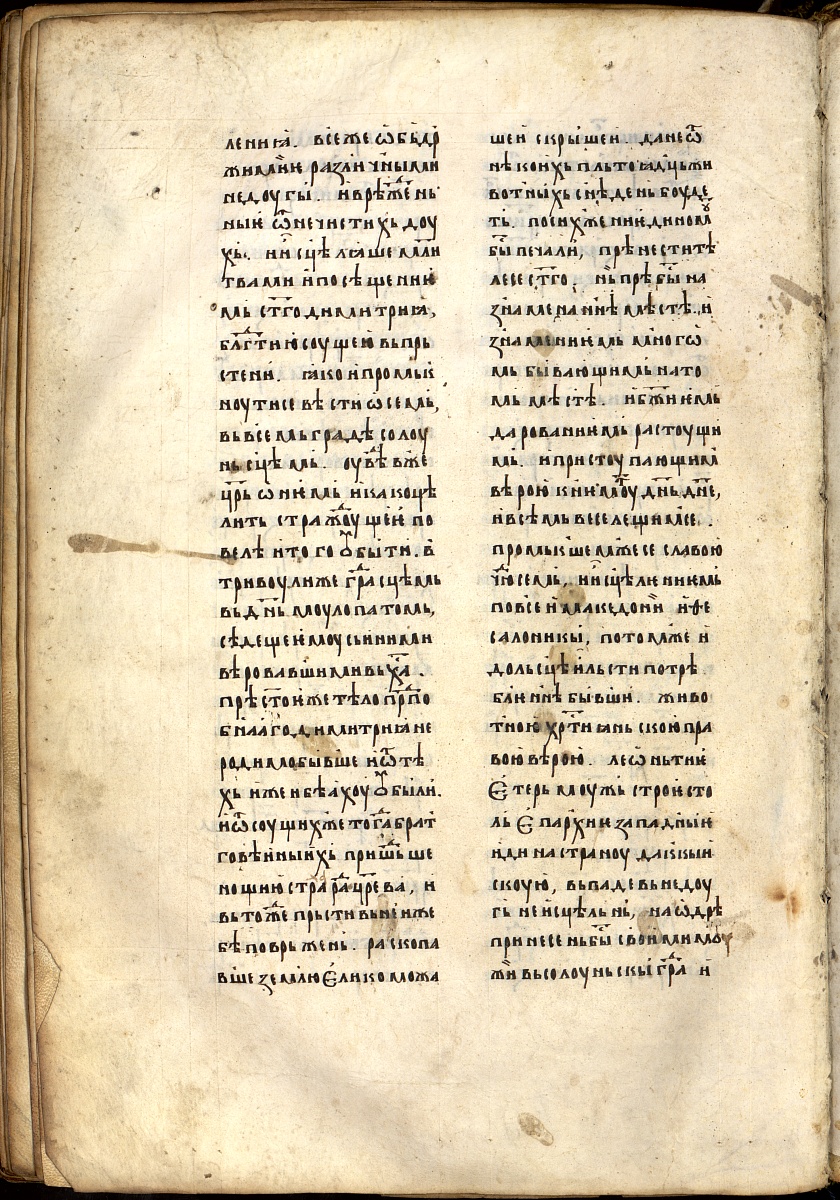 лениꙗ. вⸯсе же ѡбьдрⸯ
жимиⷩ҇ѥ различными
недоугы. и врѣжⷣенⸯ
ныѥ ѿ нечистихь доу
хь. и исцѣлꙗше мл҃и
твами и посѣщениѥ
мь ст҃го димитриꙗ,
блг҃тию соущею вь прь
стени. ꙗко и промьк
ноути се вѣсти ѡ семь,
вь всемь градѣ солоу
нⸯсцѣмь. оувѣ вⷤже
цр҃ь ѡ ниѥмь и како цѣ
лить стражⷣоущеѥ по
велѣ и того ꙋбыти. в
тривоули же граⷣсцѣмь
вь дн҃ь моу лопатомь,
сѣдещеѥмоу сь ними
вѣровавшими вь хаⷭ҇.
прѣст҃оѥ же тѣло прпⷣо
бнаⷢ҇го димитриꙗ не
родимо бывше и ѿ тѣ
хь иже и бѣахоу ꙋбили.
и ѿ соущих же тогⷣа брат
говѣиныихь пришⷣьше
нощию стра рⷣа цр҃ева, и
вь тоже прьсти вь неиже
бѣ поврьжень. раскопа
вше землю ѥлико можа
шеи скрышеи. да не ѿ
нѣкоихь пльтоꙗдць жи
вотныхь снѣдень боуде
ть. по сих же ни ѥдиномꙋ
бы печали, прѣнести тѣ
лесе ст҃го. нь прѣбыⷭ҇ на
знаменанѣ мѣстѣ. и
знамениѥмь многѡ
мь бывающимь на то
мь мѣстѣ. и бж҃иѥмь
дарованиѥмь растоущи
мь. и пристоупающимⸯ
вѣрою к ниѥмꙋ дн҃ь дн҃е,
и всѣмь веселещимⸯсе.
промькⸯше мⷤже се славою
чюⷣсемь, и исцѣлѥниѥмь
по всеи македонии и ѳе
салоникы, потом же и
дольсцѣи льсти потрѣ
блѥнⸯнѣ бывши. живо
тною хрⷭ҇тиꙗньскою пра
вою вѣрою. леѡньтиѥ
ѥтерь моужь строѥ сто
ль ѥпархиѥ западныѥ
иди на страноу дакыи
скоую, вьпаде вь недоу
гь неисцѣльнь, на ѡдрѣ
принесень быⷭ҇ своими моу
жи вь солоуньскы граⷣ и